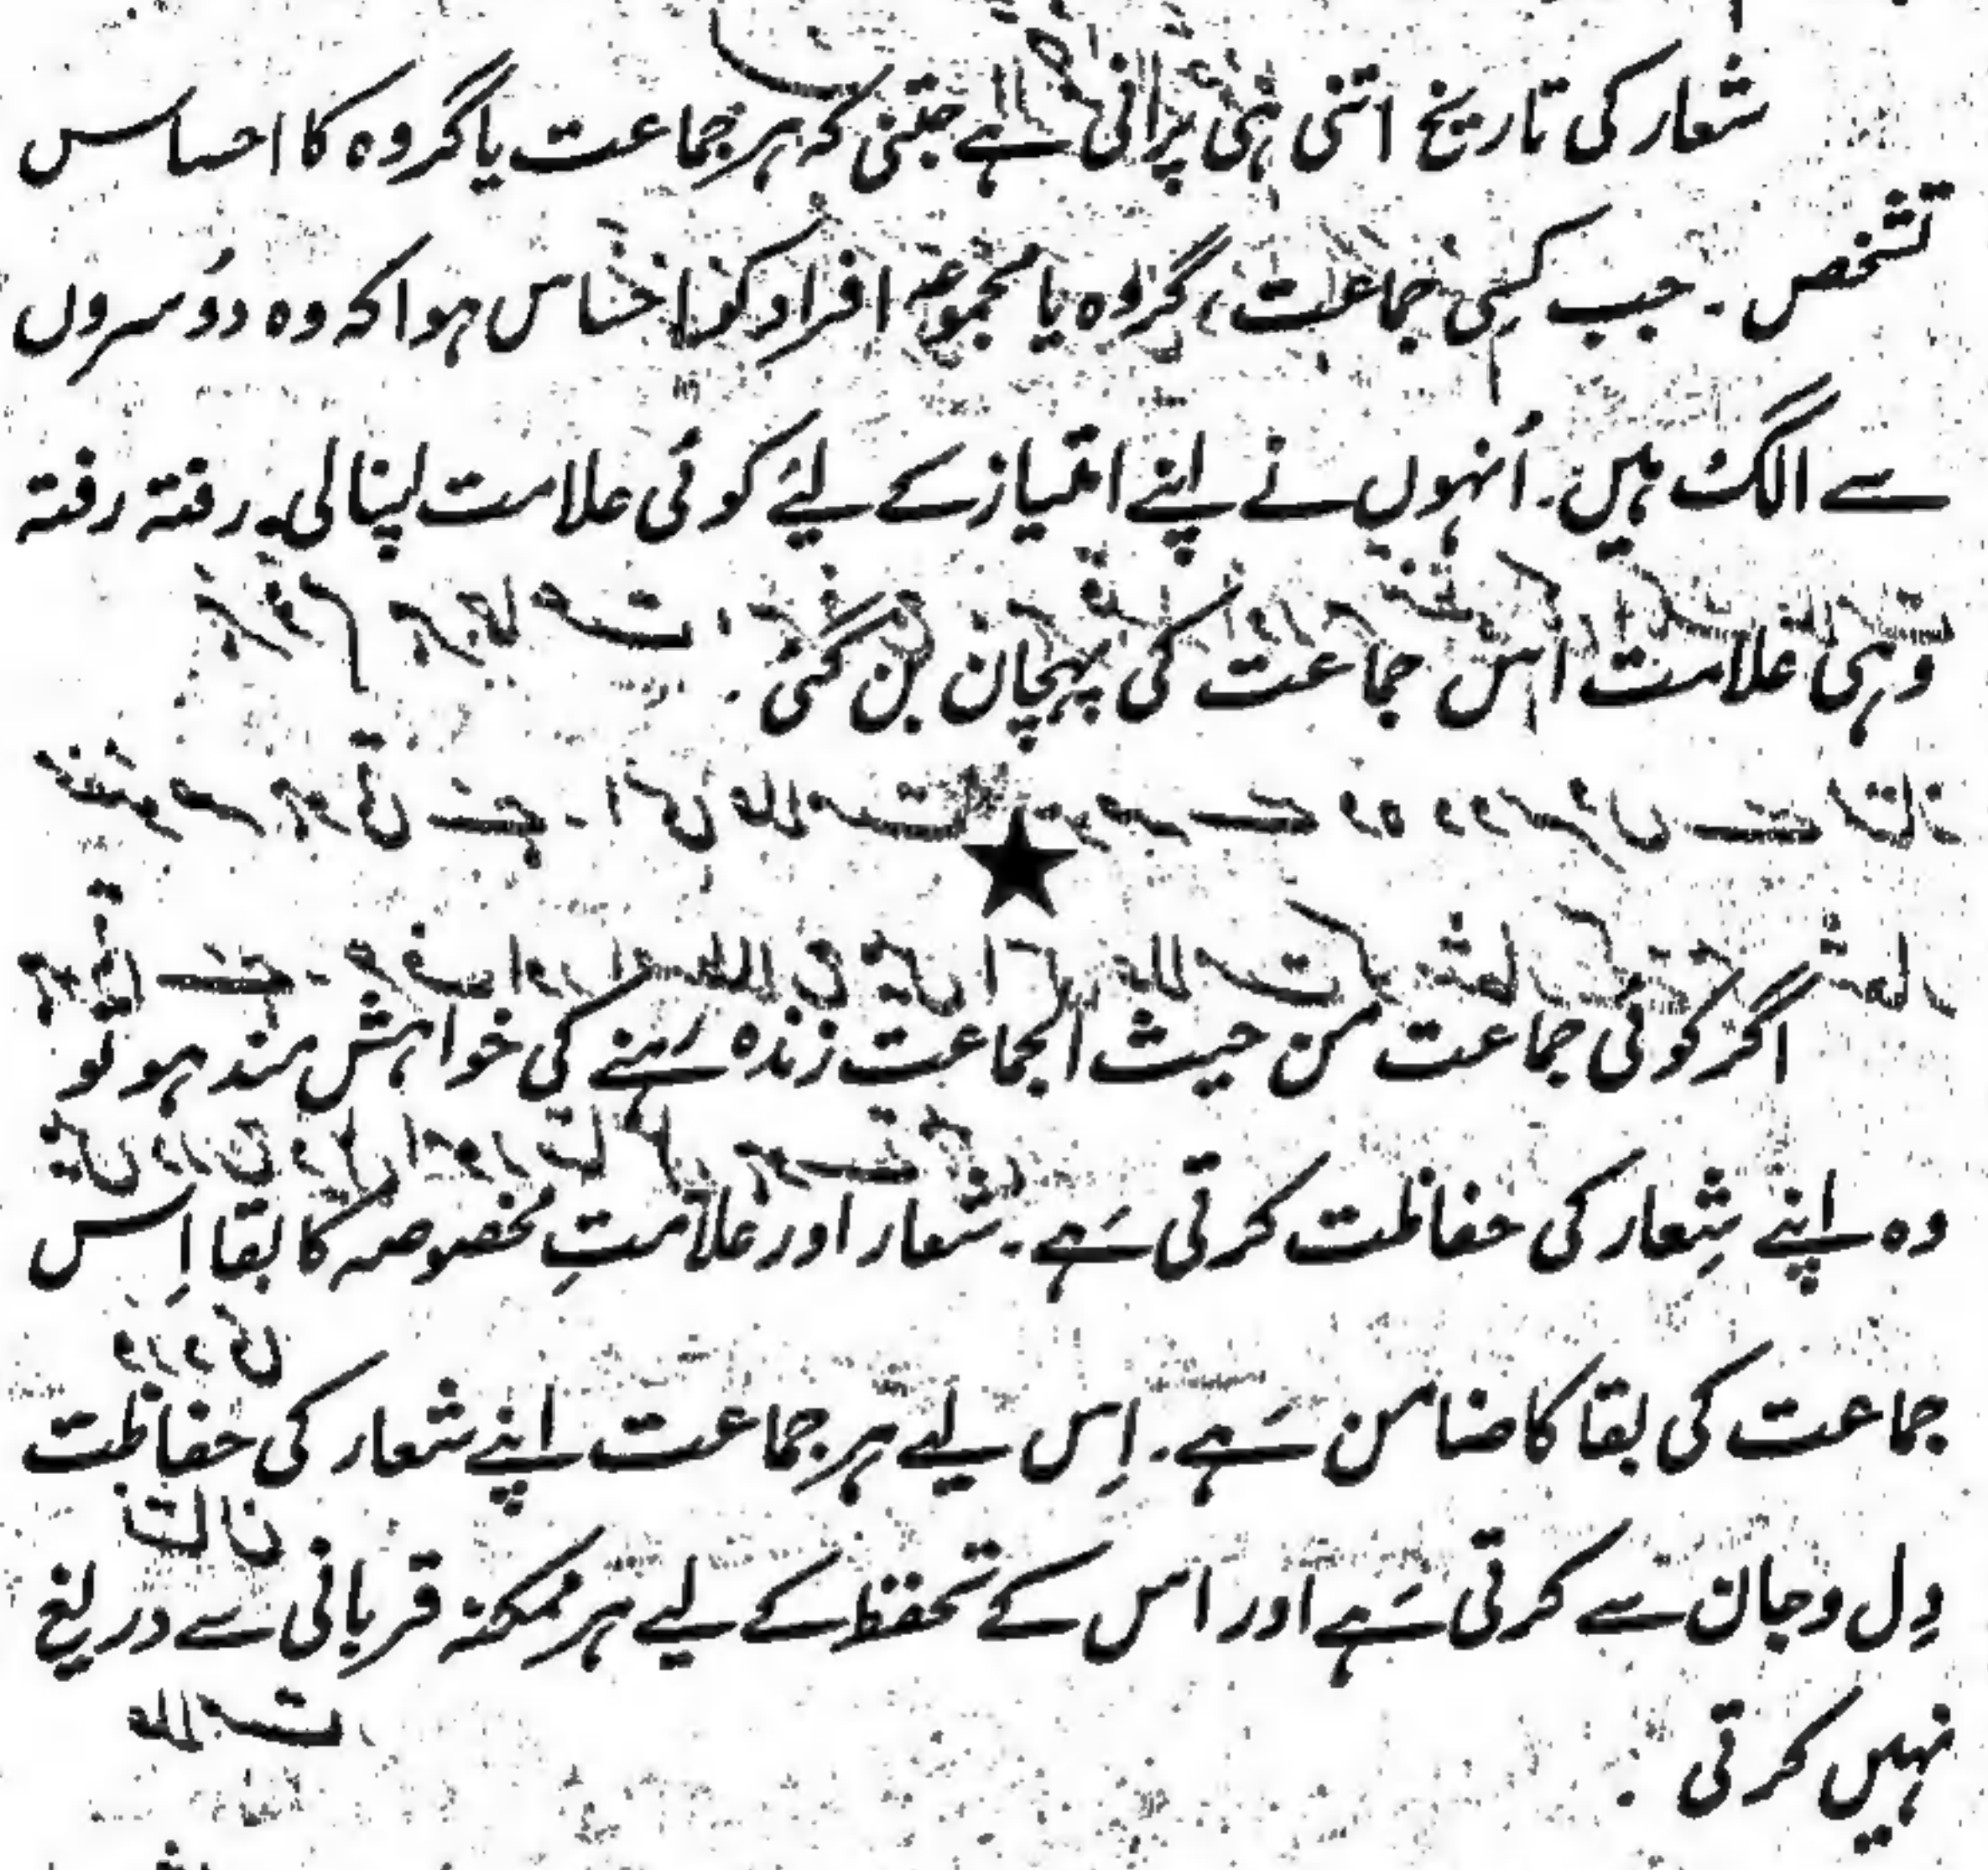 شعار کی تاریخ اتنی ہی پرانی ہے جتنی کہ ہر جماعت یا گروہ کا احساس
تشخص . جب کسِی جماعت ، گروہ یا مجموعہ افراد کو احساس ہوا کہ وہ دوُسروں
سے الگ ہیں . اُنہوں نے اپنے امتیاز کے لیٔے کوئی علامت اپنا لی . رفتہ رفتہ
وہی علامت اس جماعت کی پہچان بن گئی .
★
اگر کوئی جماعت من حیث الجماعت زندہ رَہنے کی خواہش مند ہو تو
وہ اپنے شِعار کی حفاظت کرتی ہَے . شعار اور علامتِ مخصوصہ کا بقا اِس
جماعت کی بقا کا ضامن ہَے . اِس لیے ہر جماعت اپنے شعار کی حفاظت
دِل و جان سے کرتی ہَے اور اس کے تحفظ کے لیے ہر ممکنہ قربانی سے دریغ
نہیں کرتی .